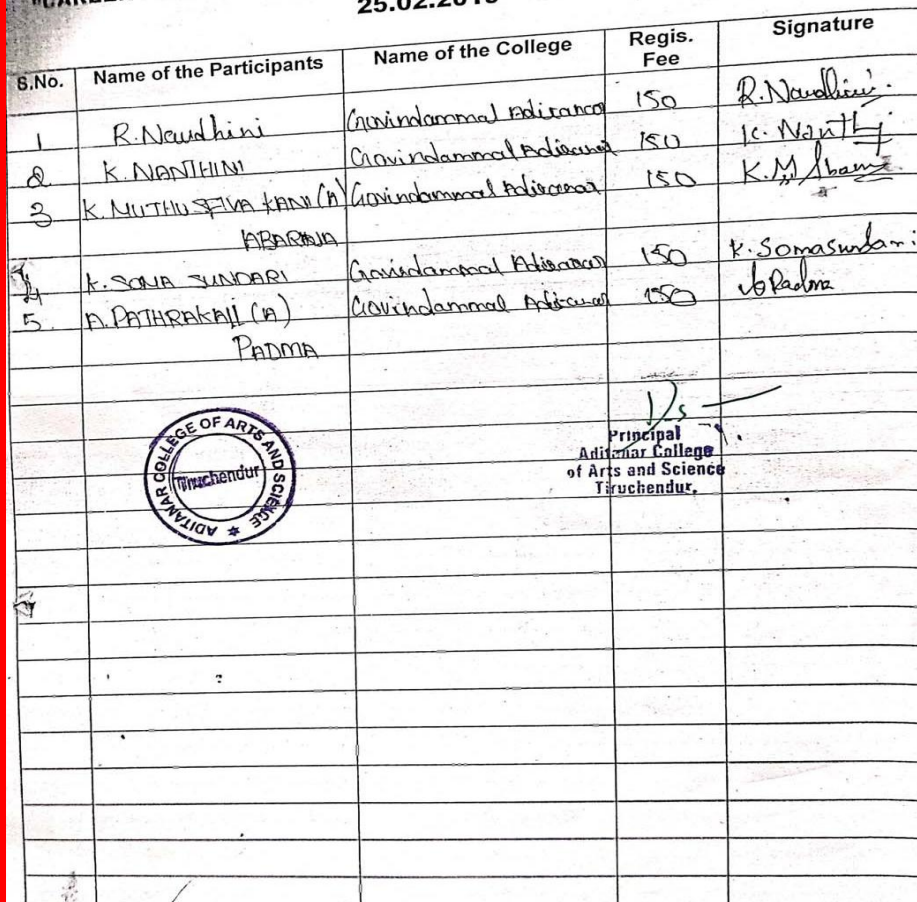 S.No. Name of the Participants Name of the College Regis. Fee Signature
1 R. Nandhini Govindammal Aditanar 150 R. Nandhini.
2 K. NANTHINI Govindammal Aditanar 150 K.
3 K. MUTHU SELVA KANI (A) Govindammal Aditanar 150 K.M
ABARANJA
4 K. SOMA SUNDARI Govindammal Aditanar 150 K. Somasundari
5. A. PATHRAKALI (A) Govindammal Aditanar 150 Padma
PADMA
ADITANAR COLLEGE OF ARTS AND SCIENCE
Tiruchendur
Principal
Aditanar College
of Arts and Science
Tiruchendur.